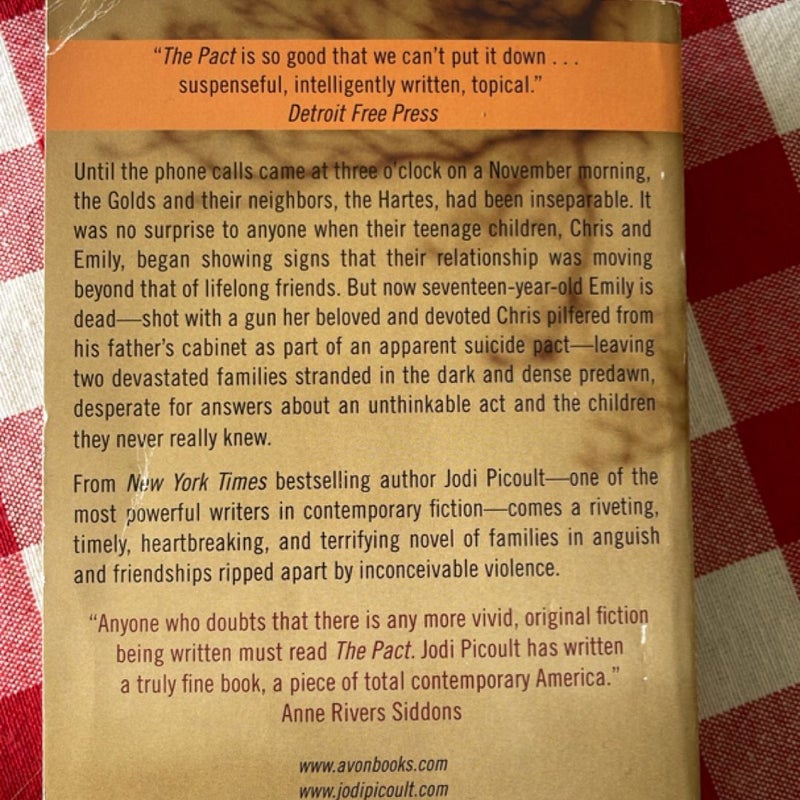 “The Pact is so good that we can’t put it down . . .
suspenseful, intelligently written, topical.”
Detroit Free Press
Until the phone calls came at three o’clock on a November morning,
the Golds and their neighbors, the Hartes, had been inseparable. It
was no surprise to anyone when their teenage children, Chris and
Emily, began showing signs that their relationship was moving
beyond that of lifelong friends. But now seventeen-year-old Emily is
dead—shot with a gun her beloved and devoted Chris pilfered from
his father’s cabinet as part of an apparent suicide pact—leaving
two devastated families stranded in the dark and dense predawn,
desperate for answers about an unthinkable act and the children
they never really knew.
From New York Times bestselling author Jodi Picoult—one of the
most powerful writers in contemporary fiction—comes a riveting,
timely, heartbreaking, and terrifying novel of families in anguish
and friendships ripped apart by inconceivable violence.
“Anyone who doubts that there is any more vivid, original fiction
being written must read The Pact. Jodi Picoult has written
a truly fine book, a piece of total contemporary America.”
Anne Rivers Siddons
www.avonbooks.com
www.jodipicoult.com